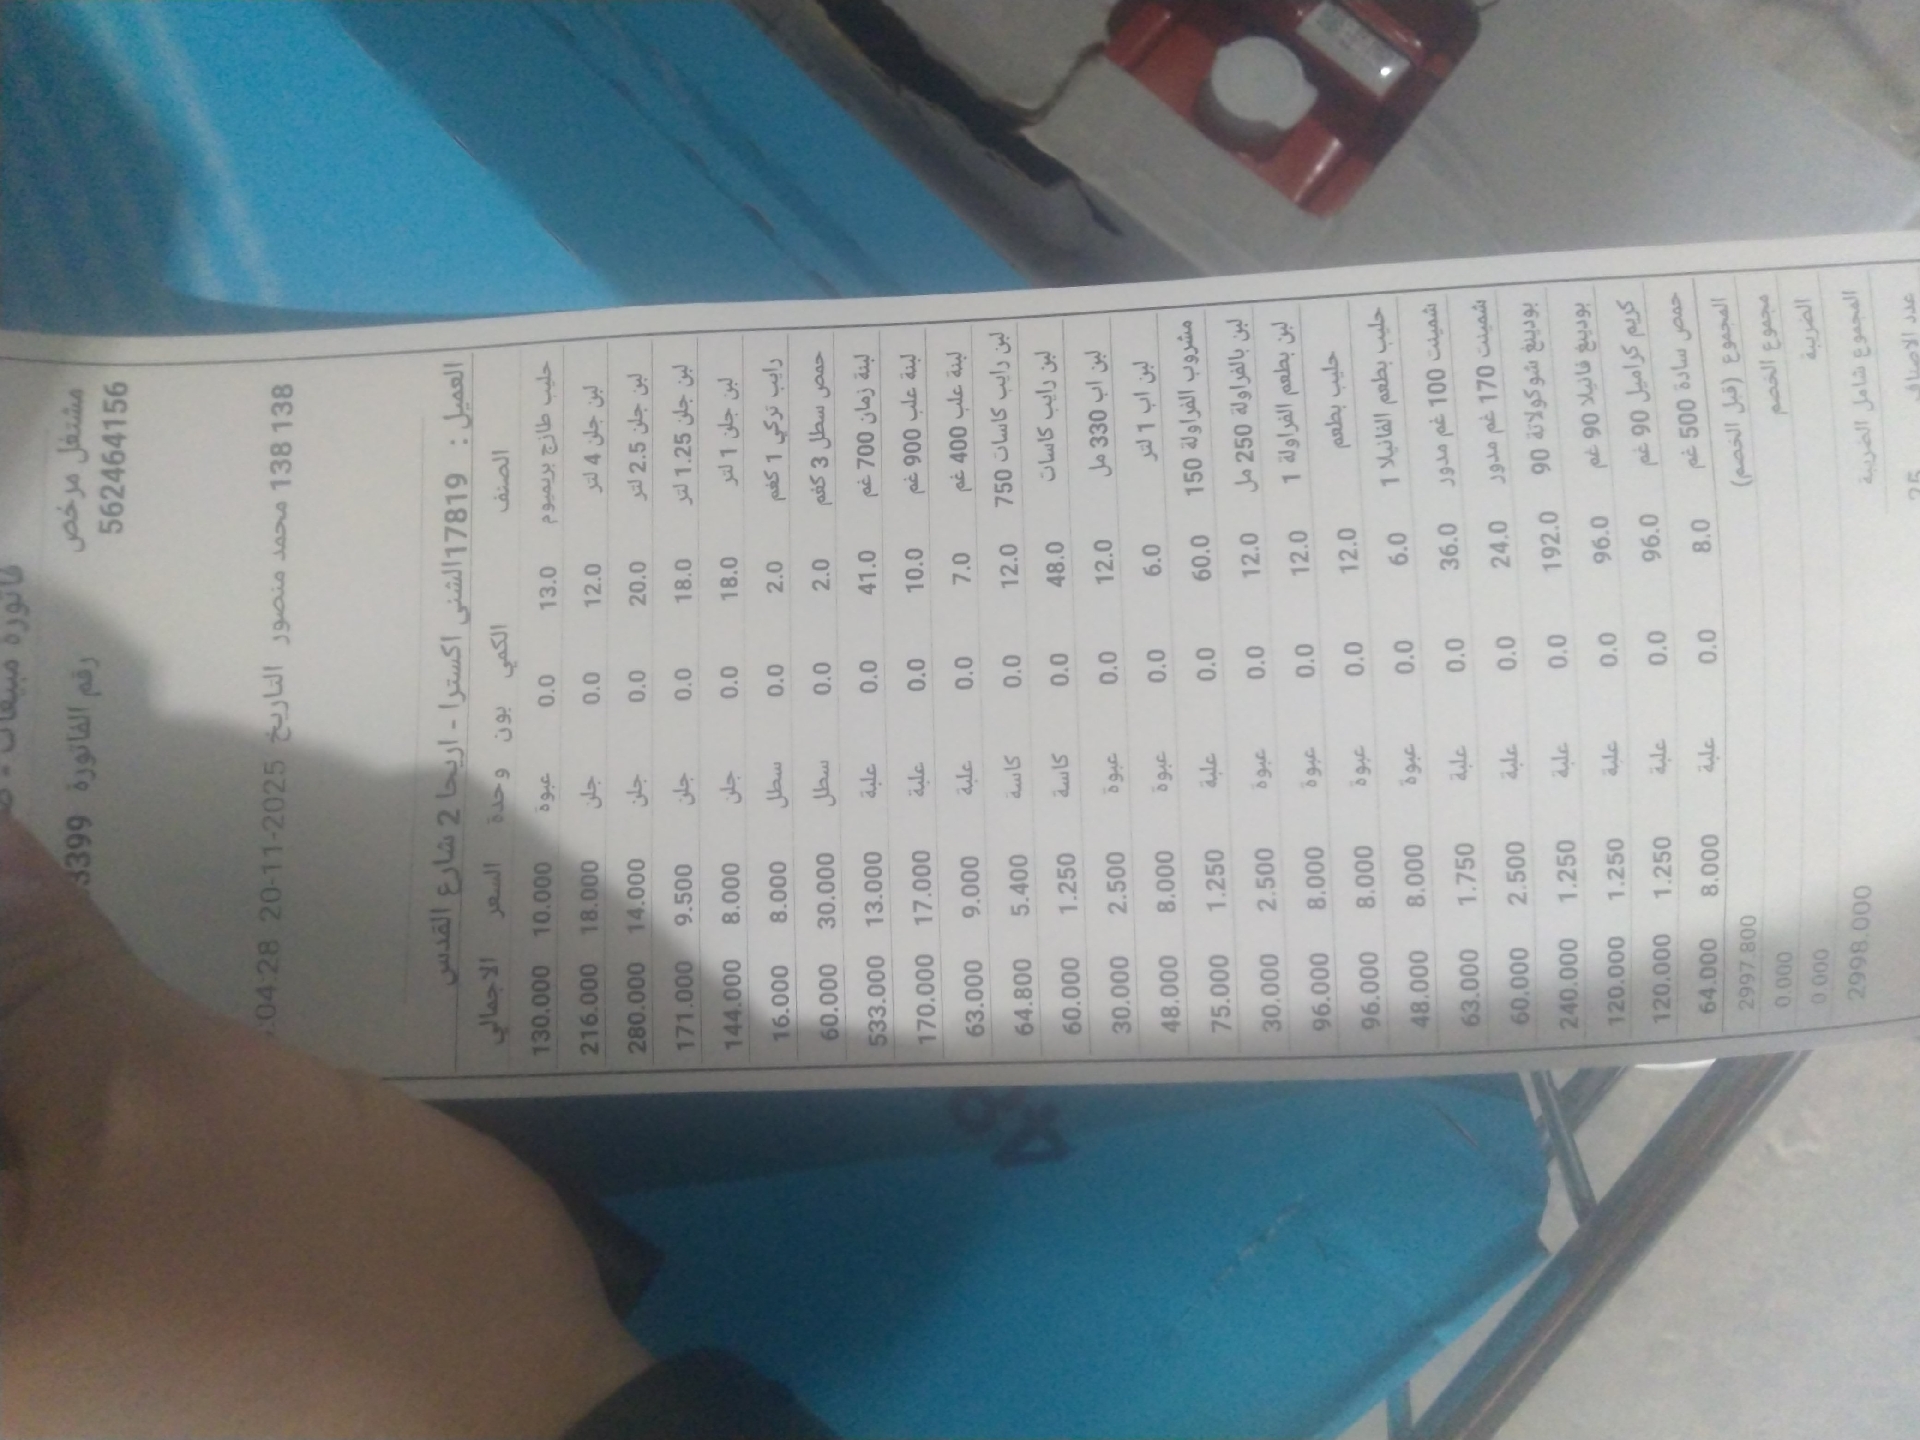 فاتورة مبيعات
مشتغل مرخص رقم الفاتورة 3399
562464156
138 138 محمد منصور التاريخ 20-11-2025 04:28:
العميل : 17819الشني اكسترا - اريحا 2 شارع القدس
الصنف الكمي بون و حدة السعر الاجمالي
حليب طازج بريميوم 13.0 0.0 عبوة 10.000 130.000
لبن جلن 4 لتر 12.0 0.0 جلن 18.000 216.000
لبن جلن 2.5 لتر 20.0 0.0 جلن 14.000 280.000
لبن جلن 1.25 لتر 18.0 0.0 جلن 9.500 171.000
لبن جلن 1 لتر 18.0 0.0 جلن 8.000 144.000
رايب تركي 1 كغم 2.0 0.0 سطل 8.000 16.000
حمص سطل 3 كغم 2.0 0.0 سطل 30.000 60.000
لبنة زمان 700 غم 41.0 0.0 علبة 13.000 533.000
لبنة علب 900 غم 10.0 0.0 علبة 17.000 170.000
لبنة علب 400 غم 7.0 0.0 علبة 9.000 63.000
لبن رايب كاسات 750 12.0 0.0 كاسة 5.400 64.800
لبن رايب كاسات 48.0 0.0 كاسة 1.250 60.000
لبن اب 330 مل 12.0 0.0 عبوة 2.500 30.000
لبن اب 1 لتر 6.0 0.0 عبوة 8.000 48.000
مشروب الفراولة 150 60.0 0.0 علبة 1.250 75.000
لبن بالفراولة 250 مل 12.0 0.0 عبوة 2.500 30.000
لبن بطعم الفراولة 1 12.0 0.0 عبوة 8.000 96.000
حليب بطعم 12.0 0.0 عبوة 8.000 96.000
حليب بطعم الفانيلا 1 6.0 0.0 عبوة 8.000 48.000
شمينت 100 غم مدور 36.0 0.0 علبة 1.750 63.000
شمينت 170 غم مدور 24.0 0.0 علبة 2.500 60.000
بودينغ شوكولاتة 90 192.0 0.0 علبة 1.250 240.000
بودينغ فانيلا 90 غم 96.0 0.0 علبة 1.250 120.000
كريم كراميل 90 غم 96.0 0.0 علبة 1.250 120.000
حمص سادة 500 غم 8.0 0.0 علبة 8.000 64.000
المجموع (قبل الخصم) 2997.800
مجموع الخصم 0.000
الضريبة 0.000
المجموع شامل الضريبة 2998.000
عدد الاصناف 25